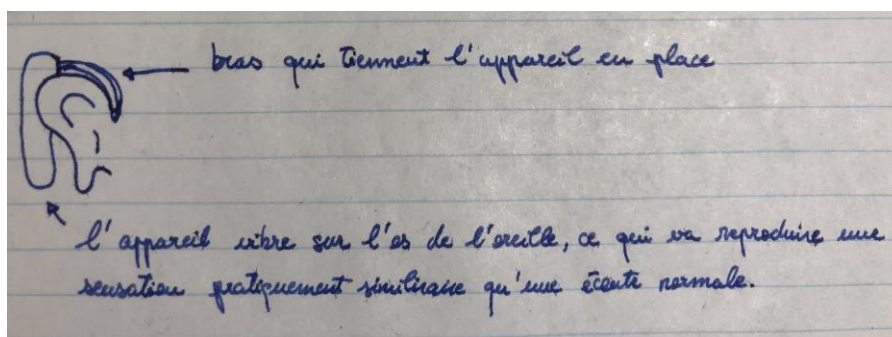 bras qui tiennent l'appareil en place
l'appareil vibre sur l'os de l'oreille, ce qui va reproduire une
sensation pratiquement similiraire qu'une écoute normale.